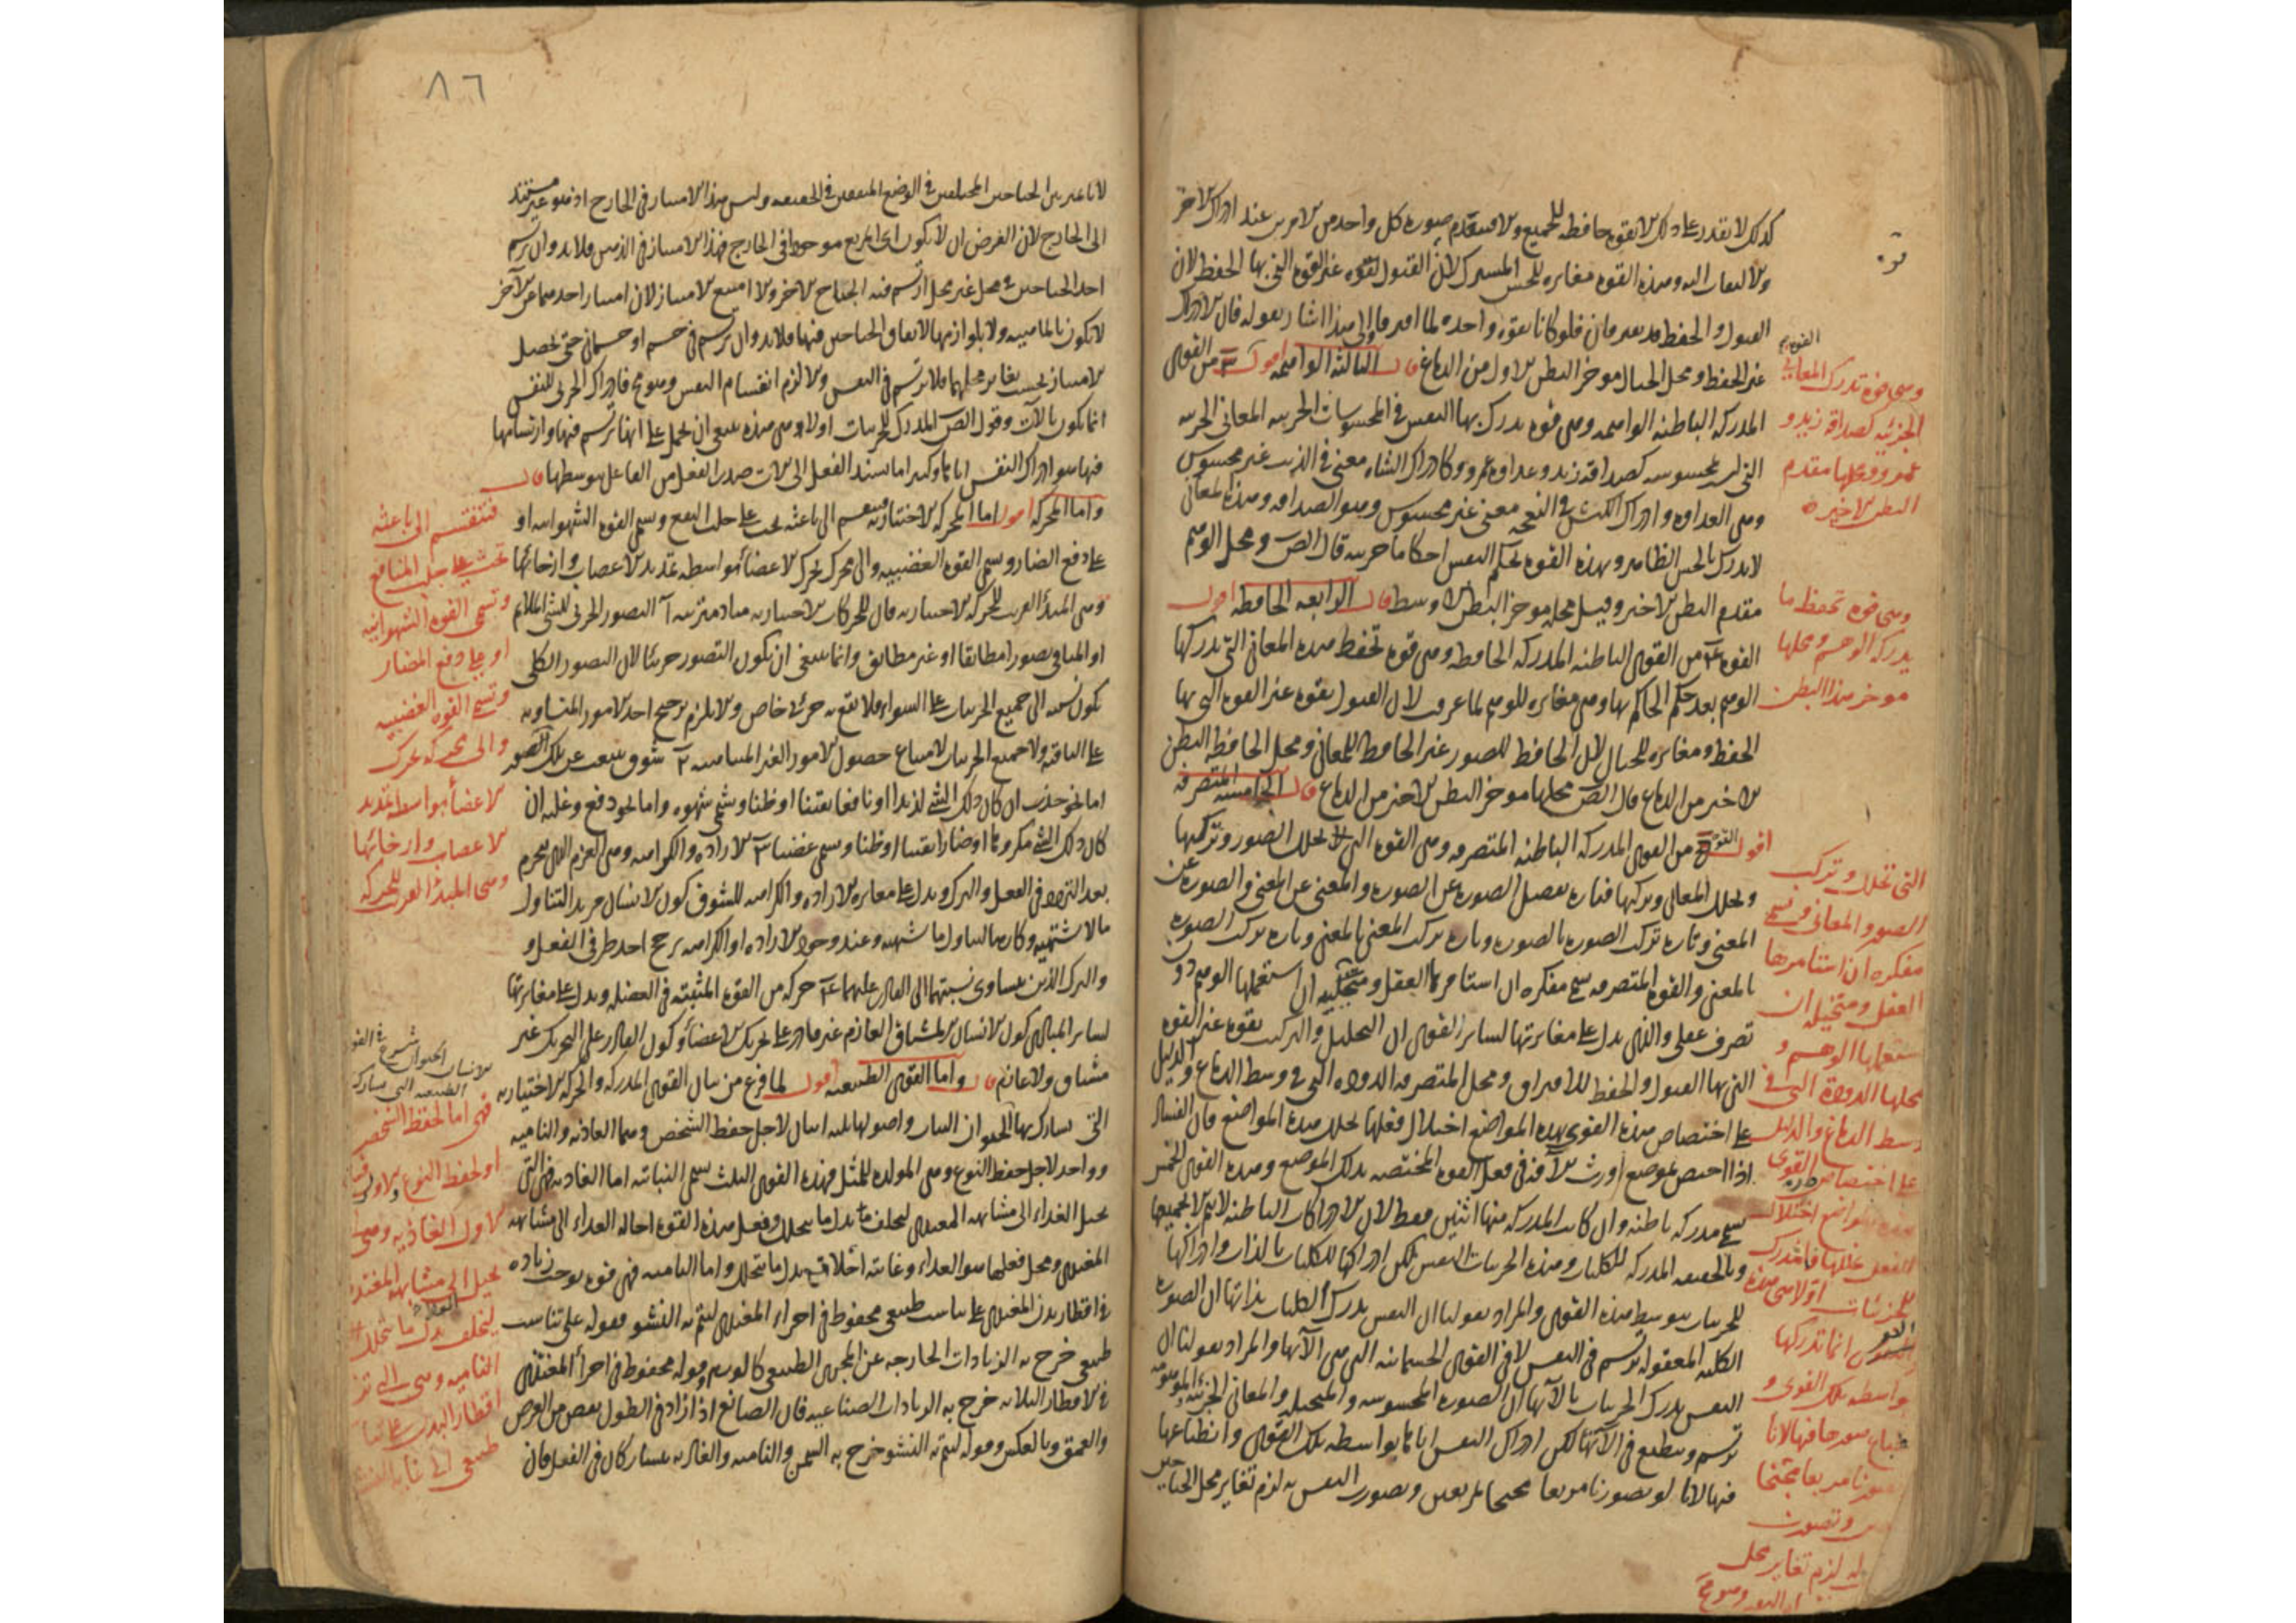 كذلك لا يقدر على ذلك الا بقوة حافظة للجميع والا فينعدم صورة كل واحد من الامرين عند ادراك الاخر
والالتفات اليه وهذه القوة مغايرة للحس المشترك لان القبول بقوة غير القوة التي بها الحفظ لان
القبول والحفظ قد يفترقان فلو كانا بقوة واحدة لما افترقا والى هذا اشار بقوله فان الادراك
غير الحفظ ومحل الخيال موخر البطن الاول من الدماغ قال الثالثة الواهمة اقول من القوى
المدركة الباطنة الواهمة وهي قوة يدرك بها النفس في المحسوسات الجزئية المعاني الجزئية
التي ليست محسوسة كصداقة زيد وعداوة عمرو وكادراك الشاة معنى في الذيب غير محسوس
وهي العداوة وادراك الكبش في النعجة معنى غير محسوس وهو الصداقة وهذه المعاني
لا يدرك بالحس الظاهر وبهذه القوة يحكم النفس احكاما جزئية قال المص ومحل الوهم
مقدم البطن الاخير وقيل محله موخر البطن الاوسط قال الرابعة الحافظة اقول
القوة من القوى الباطنة المدركة الحافظة وهي قوة تحفظ هذه المعاني التي يدركها
الوهم بعد حكم الحاكم بها وهي مغايرة للوهم لما عرفت لان القبول بقوة غير القوة التي بها
الحفظ ومغايرة للخيال لان الحافظ للصور غير الحافظ للمعاني ومحل الحافظة البطن
الاخير من الدماغ قال المص محلها موخر البطن الاخير من الدماغ قال الخامسة المتصرفة
اقول القوة من القوى المدركة الباطنة المتصرفة وهي القوة التي تحلل الصور وتركبها
وتحلل المعاني وتركبها فتارة تفصل الصورة عن الصورة والمعنى عن المعنى والصورة عن
المعنى وتارة تركب الصورة بالصورة وتارة تركب المعنى بالمعنى وتارة تركب الصورة
بالمعنى والقوة المتصرفة تسمى مفكرة ان استعملها العقل ومتخيلة ان استعملها الوهم دون
تصرف عقلي والذي يدل على مغايرتها لساير القوى ان التحليل والتركيب بقوة غير القوة
التي بها القبول والحفظ للافتراق ومحل المتصرفة الدودة التي في وسط الدماغ والدليل
على اختصاص هذه القوى بهذه المواضع اختلال فعلها بخلل هذه المواضع فان الفساد
اذا اختص بموضع اورث الآفة في فعل القوة المختصة بذلك الموضع وهذه القوى الخمس
تسمى مدركة باطنة وان كانت المدركة منها اثنتين فقط لان الادراكات الباطنة لا يتم الا بجميعها
وبالحقيقة المدركة للكليات وهذه الجزئيات النفس لكن ادراكها للكليات بالذات وادراكها
للجزئيات بتوسط هذه القوى والمراد بقولنا ان النفس يدرك الكليات بذاتها ان الصورة
الكلية المعقولة ترتسم في النفس لا في القوى الجسمانية التي هي آلاتها والمراد بقولنا ان
النفس يدرك الجزئيات بالآتها ان الصورة المحسوسة والمتخيلة والمعاني الجزئية الموهومة
ترتسم وينطبع في الآتها لكن ادراك النفس اياها بواسطة تلك القوى وانطباعها
فيها لانا لو تصورنا مربعا مجنحا بمربعين وتصورت النفس به لزم تغاير محل الجناحين
وهي قوة تدرك المعاني
الجزئية كصداقة زيد و
عمرو ومحلها مقدم
البطن الاخيرة
وهي قوة تحفظ ما
يدركه الوهم ومحلها
موخر هذا البطن
التي تحلل وتركب
الصور والمعاني وتسمى
مفكرة ان استعملها
العقل ومتخيلة ان
استعملها الوهم و
محلها الدودة التي في
وسط الدماغ والدليل
على اختصاص القوى
بهذه المواضع اختلال
انما تدركها
بواسطة تلك القوى و
فيها لانا
تصورنا مربعا مجنحا
وتصورت
به لزم تغاير محل
٨٦
لانا نميز بين الجناحين المختلفين في الوضع المتفقين في الحقيقة وليس هذا الامتياز في الخارج اذ هو غير مستند
الى الخارج لان الفرض ان لا يكون اي المربع موجودا في الخارج فهذا الامتياز في الذهن فلا بد وان يرتسم
احد الجناحين في محل غير محل ارتسم فيه الجناح الاخر والا امتنع الامتياز لان امتياز احدهما عن الآخر
لا يكون بالماهية ولا بلوازمها لاتفاق الجناحين فيها فلا بد وان يرتسم في جسم او جسماني حتى يحصل
الامتياز بحسب تغاير محلهما فلا يرتسم في النفس والا لزم انقسام النفس وهو مح فادراك الجزئي للنفس
انما يكون بالآلات وقول المص المدرك للجزئيات اولا وهي هذه ينبغي ان يحمل على انها ترتسم فيها وارتسامها
فيها هو ادراك النفس اياها وكثيرا ما يسند الفعل الى الآلات صدر الفعل من الفاعل بتوسطها قال
واما المحركة اقول اما المحركة الاختيارية فتنقسم الى باعثة تحث على جلب النفع وتسمى القوة الشهوانية او
على دفع الضار وتسمى القوة الغضبية والى محركة تحرك الاعضاء بواسطة تمديد الاعصاب وارخائها
وهي المبدأ القريب للحركة الاختيارية فان للحركات الاختيارية مبادي مترتبة آ التصور الجزئي للشيء الملائم
او المنافي تصورا مطابقا او غير مطابق وانما ينبغي ان يكون التصور جزئيا لان التصور الكلي
يكون نسبته الى جميع الجزئيات على السواء فلا يقع به جزئي خاص والا يلزم ترجيح احد الامور المتساوية
على الباقية ولا جميع الجزئيات لامتناع حصول الامور الغير المتناهية ٢ شوق ينبعث عن ذلك التصور
اما نحو جذب ان كان ذلك الشيء لذيذا او نافعا يقينا او ظنا ويسمى شهوة واما نحو دفع وغلبة ان
كان ذلك الشيء مكروها او ضارا يقينا او ظنا ويسمى غضبا ٣ الارادة والكراهة وهي العزم الذي ينجزم
بعد التردد في الفعل والترك ويدل على مغايرة الارادة والكراهة للشوق كون الانسان مريد التناول
ما لا يشتهيه وكارها لتناول ما يشتهيه وعند وجود الارادة او الكراهة يرجح احد طرفي الفعل و
والترك الذين يتساوى نسبتهما الى القادر عليهما ٤ حركة من القوة المنبثة في العضل ويدل على مغايرتها
لساير المبادي كون الانسان المشتاق العازم غير قادر على تحريك الاعضاء وكون القادر على التحريك غير
مشتاق ولا عازم قال واما القوى الطبيعية اقول لما فرغ من بيان القوى المدركة والحركة الاختيارية
التي يشارك بها الحيوان النبات واصولها ثلثة اثنان لاجل حفظ الشخص وهما الغاذية والنامية
وواحد لاجل حفظ النوع وهي المولدة للمثل فهذه القوى الثلث تسمى النباتية اما الغاذية فهي التي
تحيل الغذاء الى مشابهة المغتذي ليخلف بدل ما يتحلل وفعل هذه القوة احالة الغذاء الى مشابهة
المغتذي ومحل فعلها هو الغذاء وغايته اخلاف بدل ما يتحلل واما النامية فهي قوة توجب زيادة
في اقطار بدن المغتذي على تناسب طبيعي محفوظ في اجزاء المغتذي ليتم به النشو فقوله على تناسب
طبيعي خرج به الزيادات الخارجة عن المجرى الطبيعي كالورم وقوله محفوظ في اجزاء المغتذي
في الاقطار الثلاثة خرج به الزيادات الصناعية فان الصانع اذا زاد في الطول نقص من العرض
والعمق وبالعكس وقوله ليتم به النشو خرج به السمن والنامية والغاذية يتشاركان في الفعل فان
فتنقسم الى باعثة
تحث على جلب المنافع
وتسمى القوة الشهوانية
او على دفع المضار
وتسمى القوة الغضبية
والى محركة تحرك
الاعضاء بواسطة تمديد
الاعصاب وارخائها
وهي المبدأ القريب للحركة
فهي اما لحفظ الشخص
او لحفظ النوع والاول
الاول الغاذية وهي
تحيل الى مشابهة المغتذي
ليخلف بدل ما يتحلل
النامية وهي التي
اقطار البدن على
طبيعي الى غاية